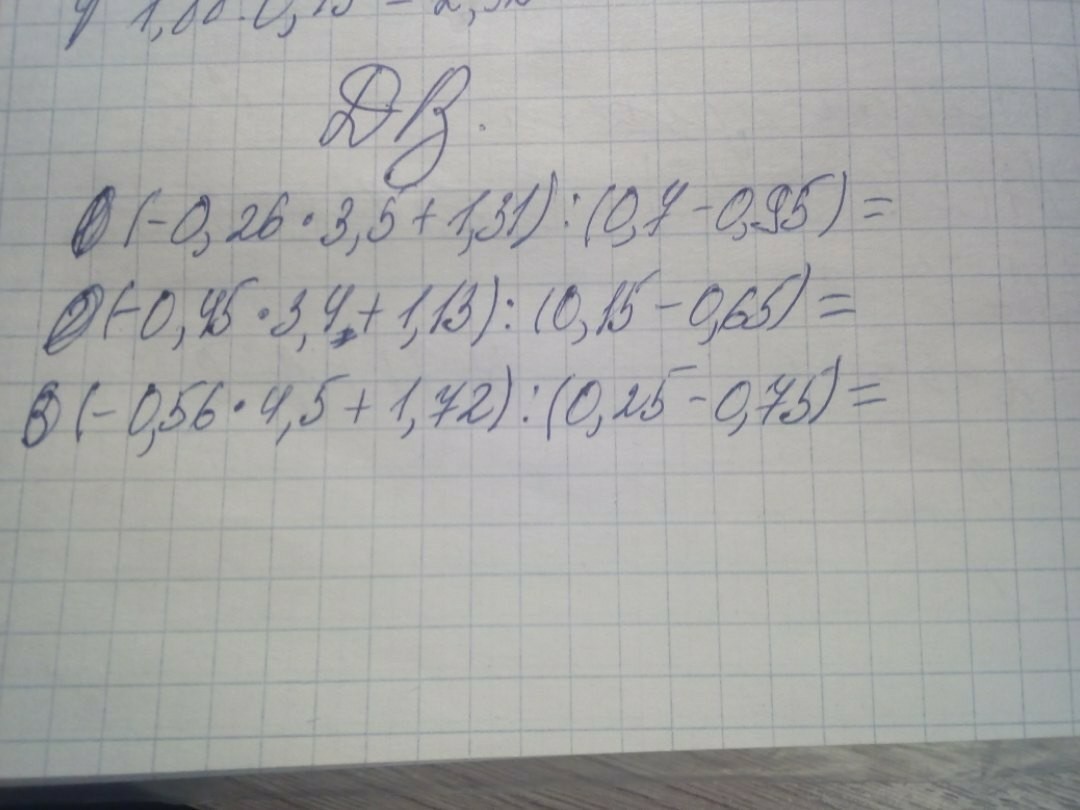 ДЗ.
1) (-0,26·3,5+1,31):(0,7-0,95)=
2) (-0,45·3,4+1,13):(0,15-0,65)=
3) (-0,56·4,5+1,72):(0,25-0,75)=